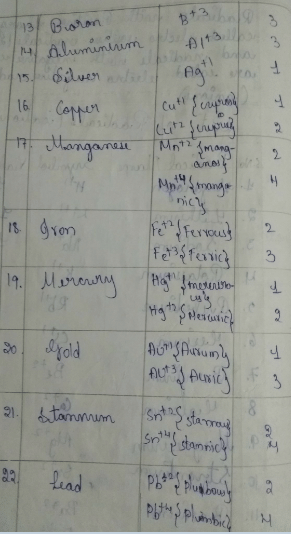 13. Boron B+3 3
14. Aluminium Al+3 3
15. Silver Ag+1 1
16. Copper Cu+1 {cuprous} 1
Cu+2 {cupric} 2
17. Manganese Mn+2 {mang-
anous} 2
Mn+4 {manga-
nic} 4
18. Iron Fe+2 {Ferrous} 2
Fe+3 {Ferric} 3
19. Mercury Hg+1 {mercuro-
us} 1
Hg+2 {Mercuric} 2
20. Gold Au+1 {Aurum} 1
Au+3 {Auric} 3
21. Stannum Sn+2 {stannous} 2
Sn+4 {stannic} 4
22. Lead Pb+2 {Plumbous} 2
Pb+4 {Plumbic} 4